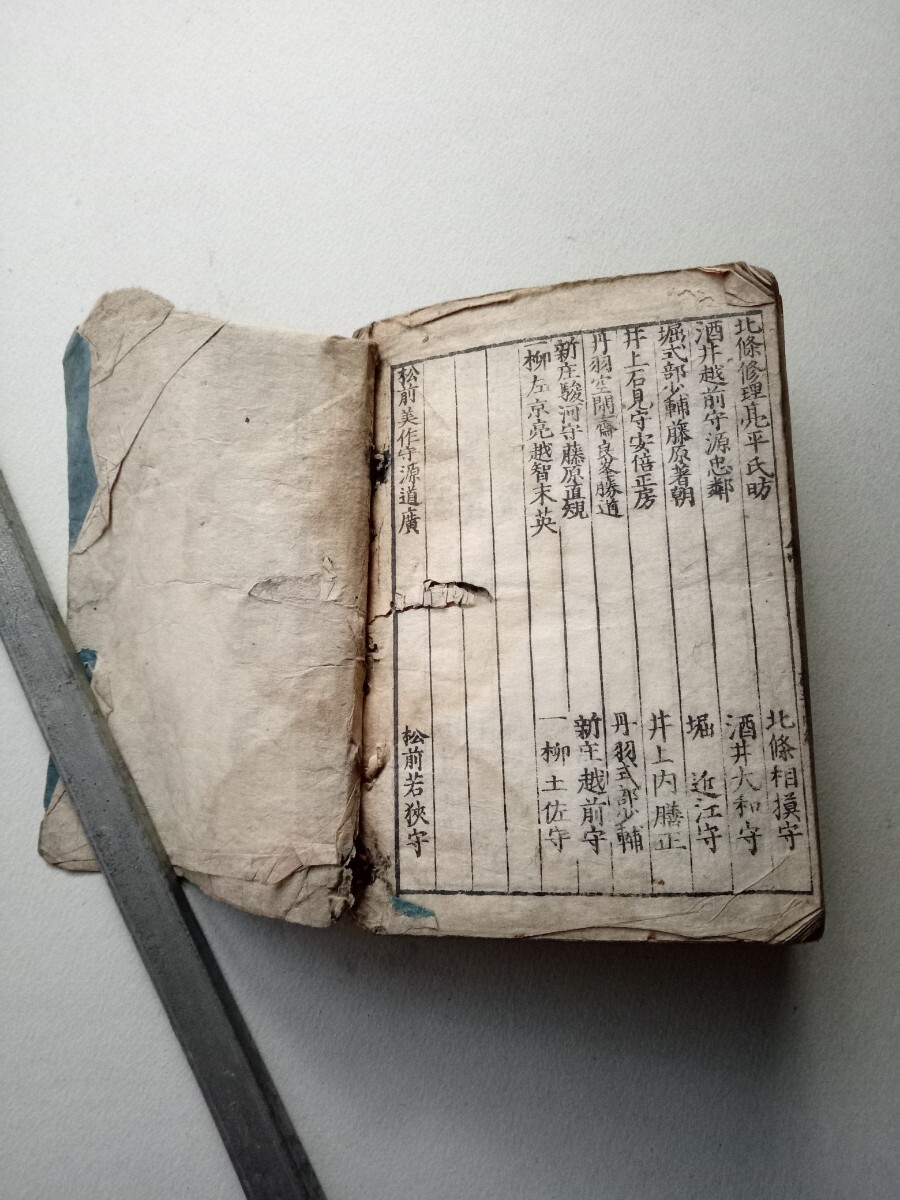 北條修理亮平氏昉
北條相摸守
酒井越前守源忠鄰
酒井大和守
堀式部少輔藤原著朝
堀 近江守
井上石見守安倍正房
井上内膳正
丹羽空閑齋良峯勝道
丹羽式部少輔
新庄駿河守藤原直規
新庄越前守
一柳左京亮越智末英
一柳土佐守
松前美作守源道廣
松前若狹守